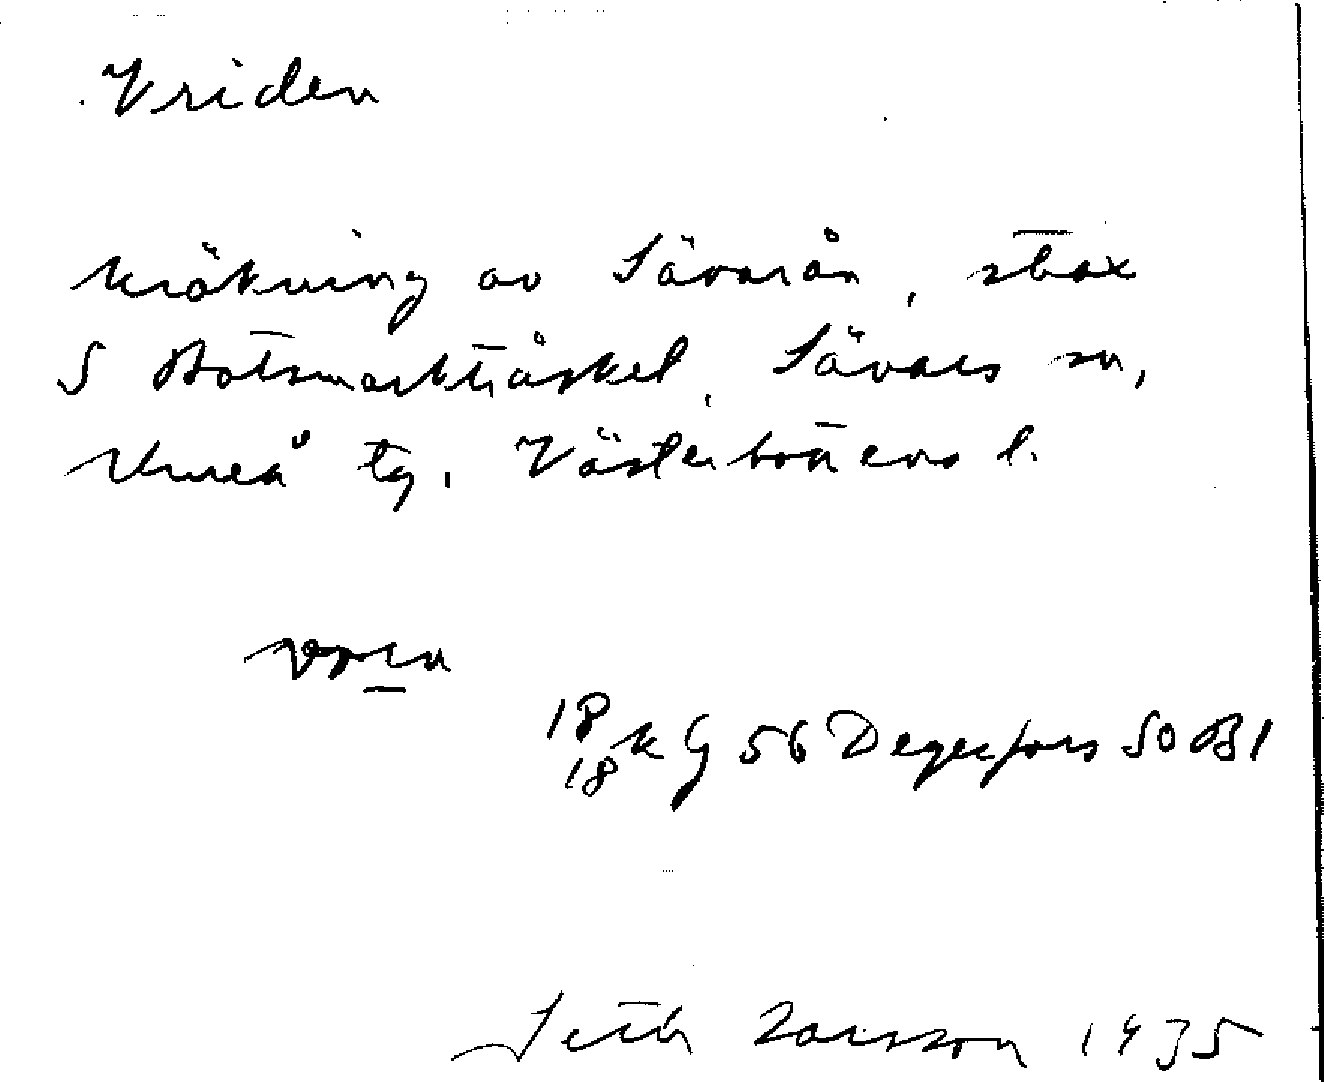 Vriden
krökning av Sävarån, strax
S Botsmarkträsket, Sävars sn,
Umeå tg, Västerbottens l.
vrın
18/18 k G 56 Degerfors SO B1
Seth Larsson 1935